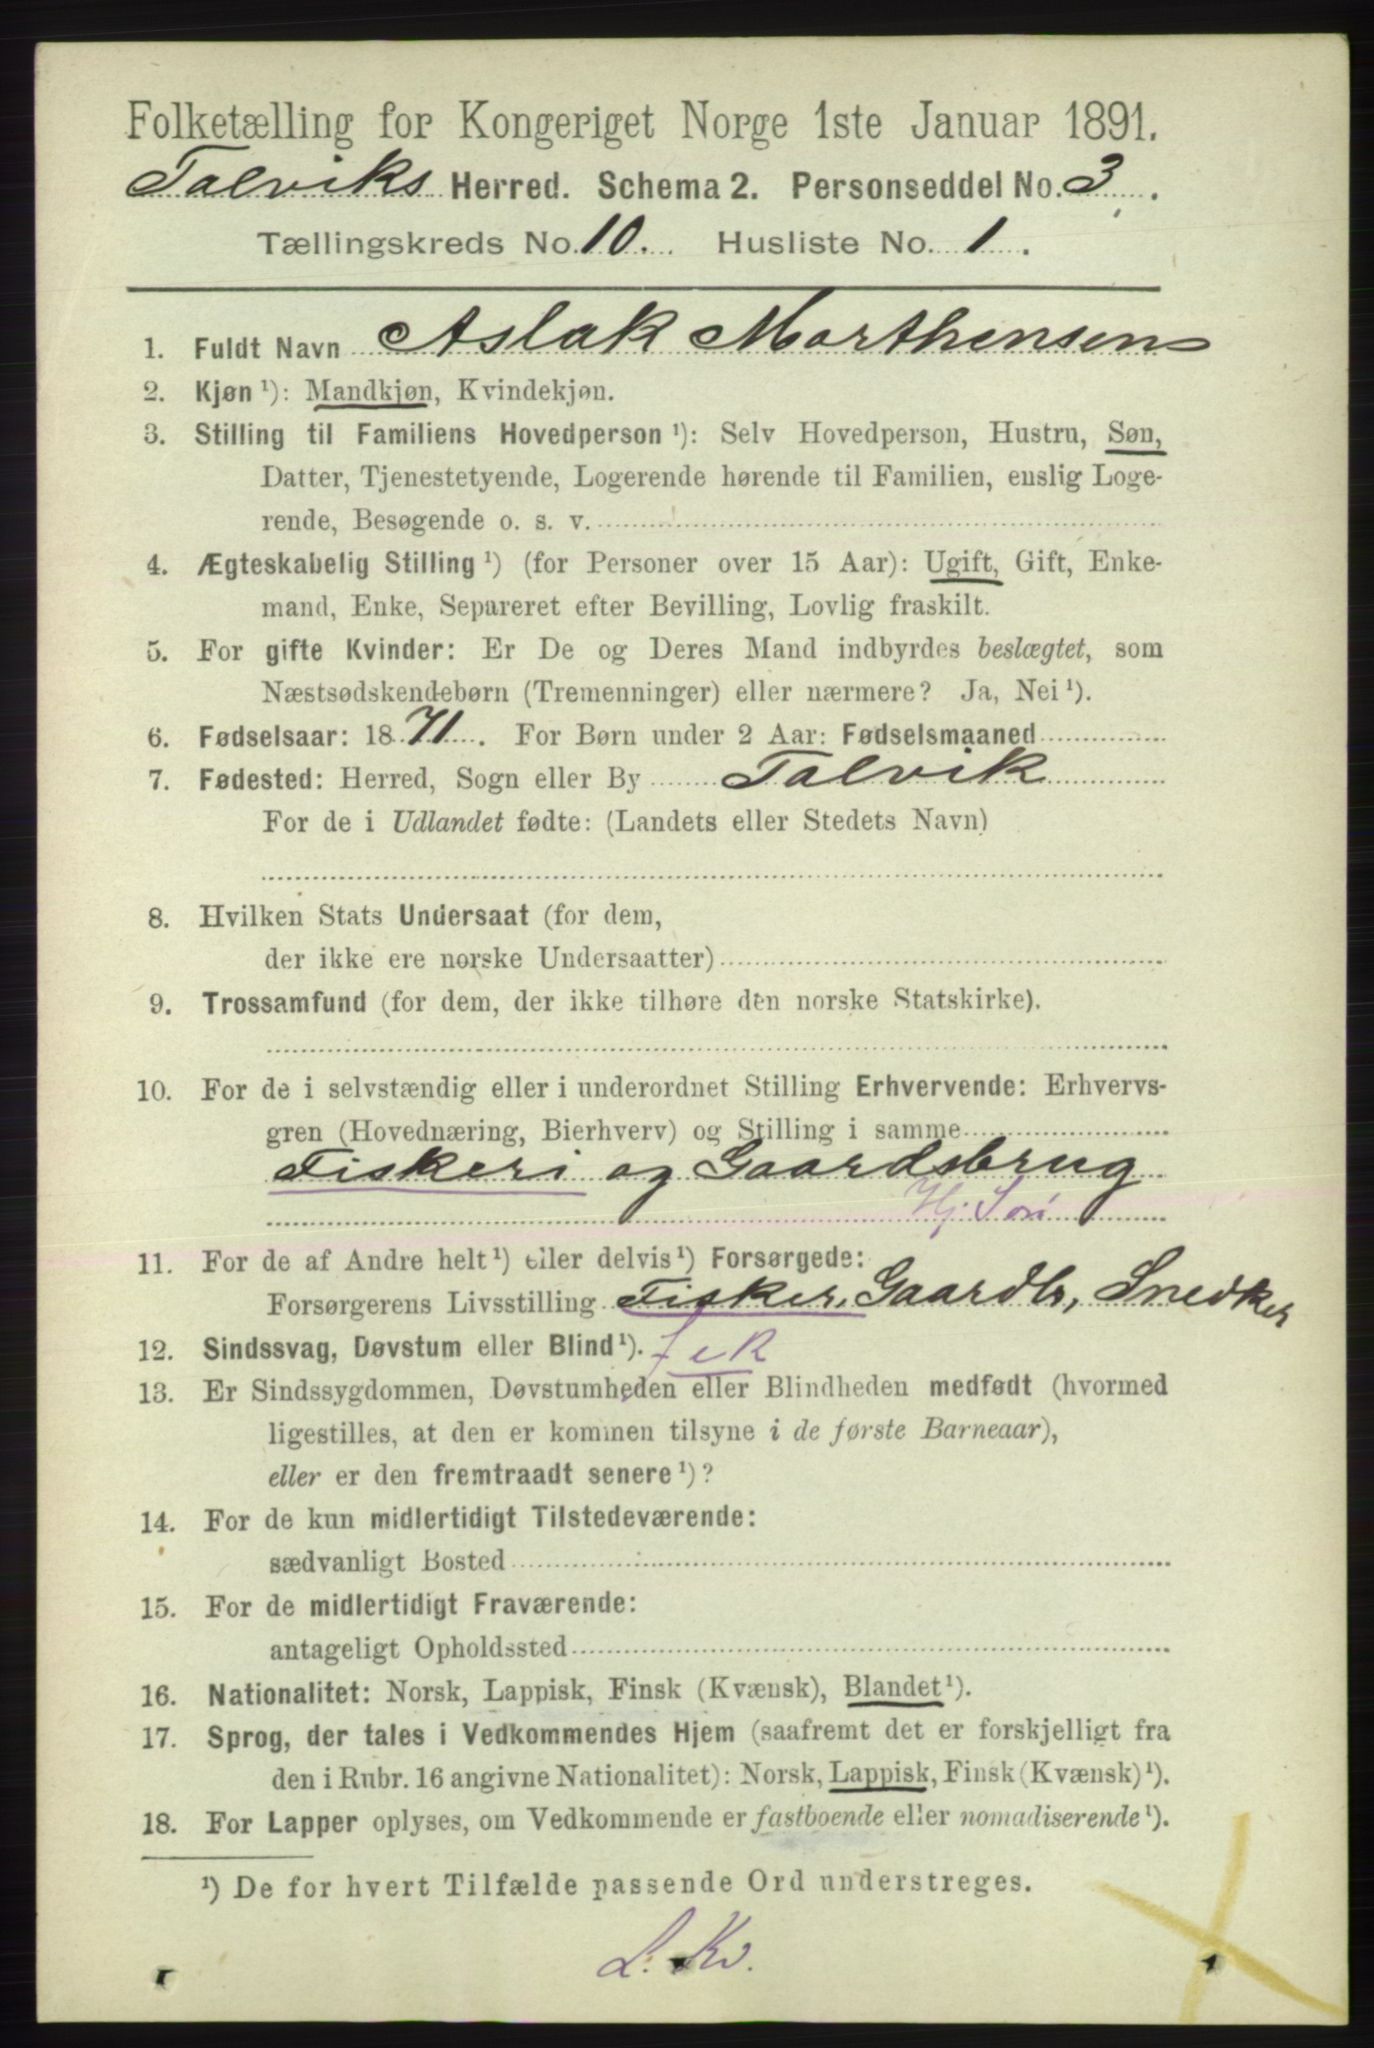 Folketælling for Kongeriget Norge 1ste Januar 1891.
Talviks Herred. Schema 2. Personseddel No. 3.
Tællingskreds No. 10. Husliste No. 1.
1. Fuldt Navn Aslak Morthensen
2. Kjøn ¹): Mandkjøn, Kvindekjøn.
3. Stilling til Familiens Hovedperson ¹): Selv Hovedperson, Hustru, Søn,
Datter, Tjenestetyende, Logerende hørende til Familien, enslig Loge-
rende, Besøgende o. s. v.
4. Ægteskabelig Stilling ¹) (for Personer over 15 Aar): Ugift, Gift, Enke-
mand, Enke, Separeret efter Bevilling, Lovlig fraskilt.
5. For gifte Kvinder: Er De og Deres Mand indbyrdes beslægtet, som
Næstsødskendebørn (Tremenninger) eller nærmere? Ja, Nei ¹).
6. Fødselsaar: 1871. For Børn under 2 Aar: Fødselsmaaned
7. Fødested: Herred, Sogn eller By Talvik
For de i Udlandet fødte: (Landets eller Stedets Navn)
8. Hvilken Stats Undersaat (for dem,
der ikke ere norske Undersaatter)
9. Trossamfund (for dem, der ikke tilhøre den norske Statskirke).
10. For de i selvstændig eller i underordnet Stilling Erhvervende: Erhvervs-
gren (Hovednæring, Bierhverv) og Stilling i samme
Fiskeri og Gaardsbrug
11. For de af Andre helt ¹) eller delvis ¹) Forsørgede:
Forsørgerens Livsstilling Fisker, Gaardbr, Snedker
12. Sindssvag, Døvstum eller Blind ¹).
13. Er Sindssygdommen, Døvstumheden eller Blindheden medfødt (hvormed
ligestilles, at den er kommen tilsyne i de første Barneaar),
eller er den fremtraadt senere ¹)?
14. For de kun midlertidigt Tilstedeværende:
sædvanligt Bosted
15. For de midlertidigt Fraværende:
antageligt Opholdssted
16. Nationalitet: Norsk, Lappisk, Finsk (Kvænsk), Blandet ¹).
17. Sprog, der tales i Vedkommendes Hjem (saafremt det er forskjelligt fra
den i Rubr. 16 angivne Nationalitet): Norsk, Lappisk, Finsk (Kvænsk) ¹).
18. For Lapper oplyses, om Vedkommende er fastboende eller nomadiserende ¹).
¹) De for hvert Tilfælde passende Ord understreges.
L. Kv.